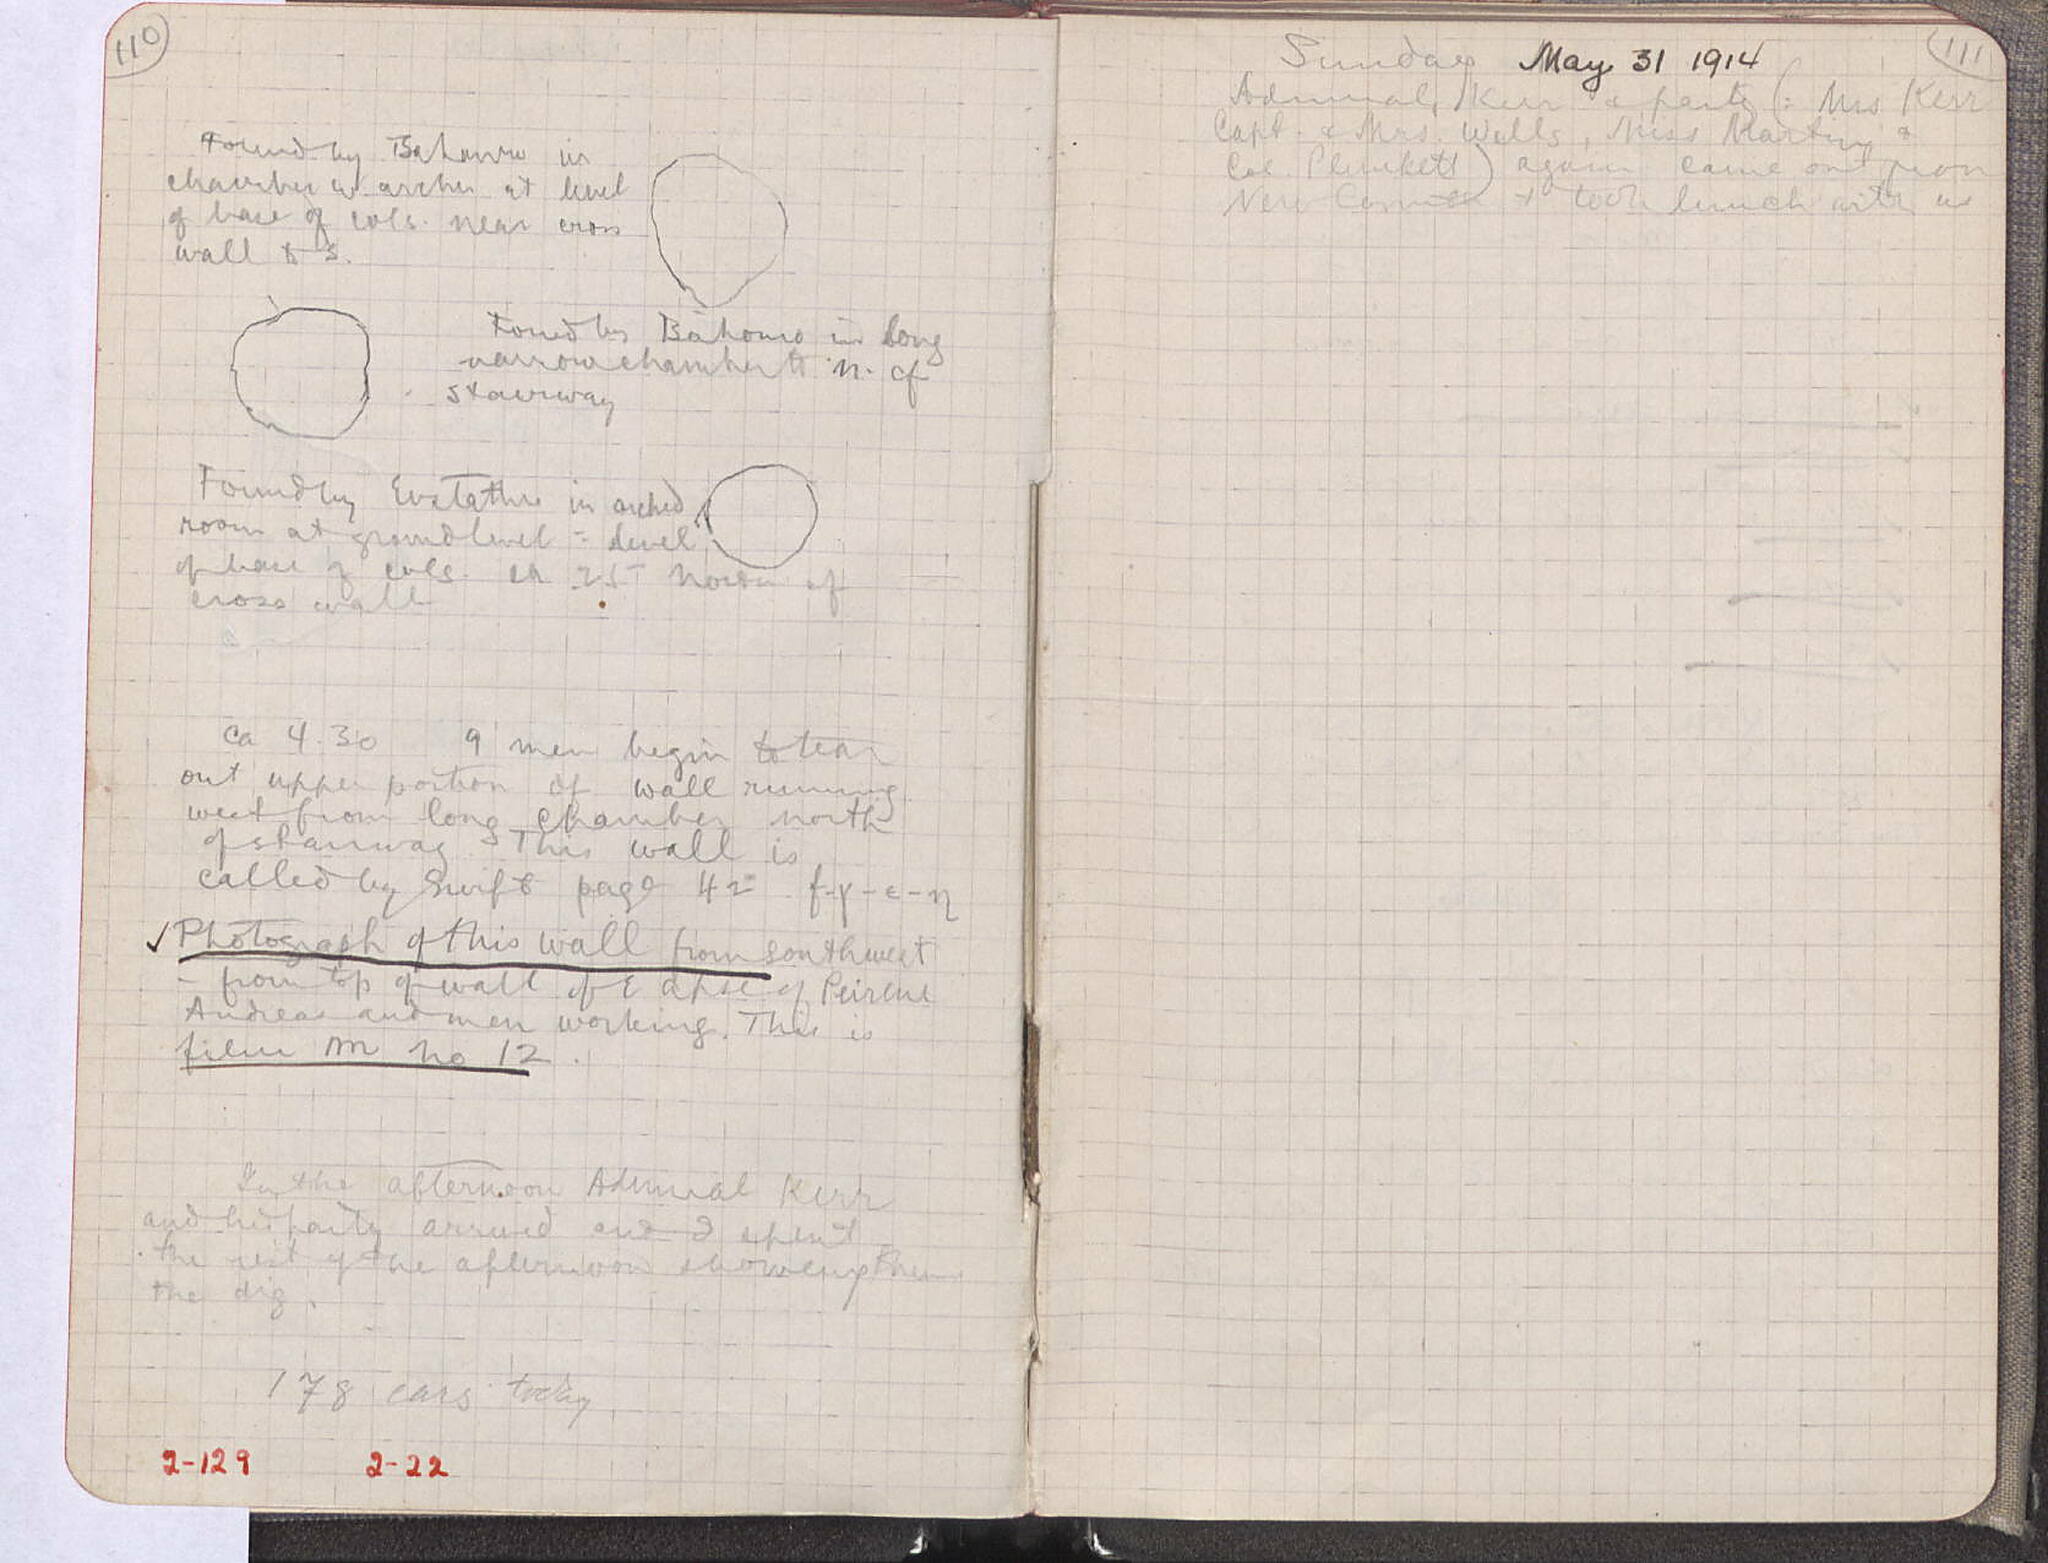 110
Found by Bahouro in
chamber w. arches at level
of base of cols. near cross
wall to S.
Found by Bahouro in long
narrow chamber to n. of
stairway
Found by Evstathie in arched
room at ground level = level
of base of cols. ca 25 north of
cross wall
ca 4.30 9 men begin to tear
out upper portion of wall running
west from long chamber north
of stairway. This wall is
called by Swift page 42 f-γ-ε-η
✓ Photograph of this wall from southwest
- from top of wall of E apse of Peirene
Andreas and men working. This is
film M no 12.
In the afternoon Admiral Kerr
and his party arrived and I spent
the rest of the afternoon showing them
the dig.
178 cars today
2-129 2-22
111
Sunday May 31 1914
Admiral Kerr & party (: Mrs Kerr
Capt. & Mrs. Wells, Miss &
Col. Plunkett) again came out from
New Corinth & took lunch with us